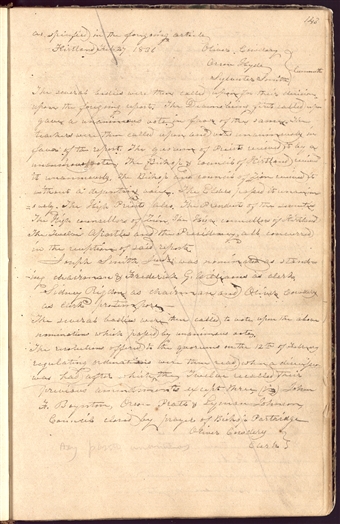 140
as specified in the foregoing article.
Kirtland 1836 Oliver Cowdery
Orson Hyde Committee
Sylvester Smith
The several bodies were then called upon for their decision
upon the foregoing report. The Deacons being first called upon
gave a unanimous vote in favor of the same. The
teachers were then called upon and voted unanimously in
favor of the report. The quorum of Priests carried it by a
unanimous vote. The Bishop & council of Kirtland carried
it unanimously, the Bishop and council of Zion carried it
without a dissenting voice. The Elders passed it unanim-
ously. The High Priests also. The Presidents of the seventy
The High counsellors of Zion, The High counsellors of Kirtland
The Twelve Apostles and the Presidency, all concurred
in the reception of said report.
Joseph Smith Jun. was nominated as stand-
ing chairman & Frederick G. Williams as clerk
Sidney Rigdon as chairman and Oliver Cowdery
as clerk protempore
The several bodies were then called to vote upon the above
nominations which passed by unanimous vote.
The resolution offered to the quorums on the 12th of February
regulating ordinations were then read, when a discussion
was had after which the Twelve recalled their
previous amendments except Parley John
F. Boynton, Orson Pratt & Lyman Johnson
Council closed by prayer of Bishop Partridge
Oliver Cowdery
Clerk